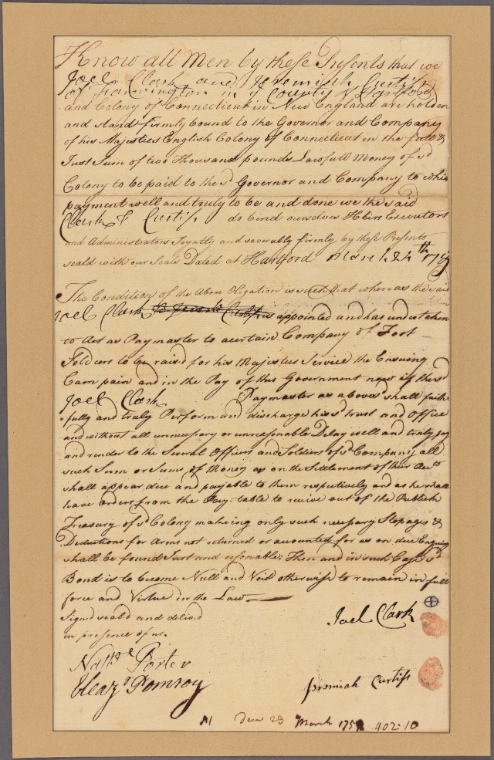 Know all Men by these Presents that we
Joel Clark and Jeremiah Curtiss
of Farmington in ye County of Hartford
and Colony of Connecticut in New England are holden
and stand firmly bound to the Governor and Company
of his Majesties English Colony of Connecticut in the
Just Sum of two Thousand pounds Lawfull Money of sd
Colony to be paid to the sd Governor and Company to which
payment well and truly to be and done we the said
Clark & Curtiss do bind ourselves Heirs Executors
and Administrators Joyntly and severally firmly by these Presents
seald with our Seals Dated at Hartford March 24th
The Condition of the Above Obligation is such that whereas the said
Joel Clark is appointed and has undertaken
to Act as Paymaster to a certain Company of Foot
Soldiers to be raised for his Majesties Service the Ensuing
Campain and in the Pay of this Government now if the sd
Joel Clark Paymaster as above shall faith
fully and truly Perform and discharge his sd trust and Office
and without all unnecessary or unreasonable Delay well and truly pay
and render to the Several Officers and Soldiers of sd Company all
such Sum or Sums of Money as on the Settlement of their Acts
shall appear due and payable to them respectively and as he shall
have orders from the Pay-table to receive out of the Publick
Treasury of sd Colony making only such necessary Stopages &
Deductions for Arms not returned or accounted for as on due Enquiry
shall be found Just and reasonable Then and in such Case ye sd
Bond is to become Null and Void otherwise to remain in full
force and Virtue in the Law
Signd seald and delivd
in presence of us
Joel Clark
Nathl Porter
Eleazr Pomroy
Jeremiah Curtiss
March 402-10